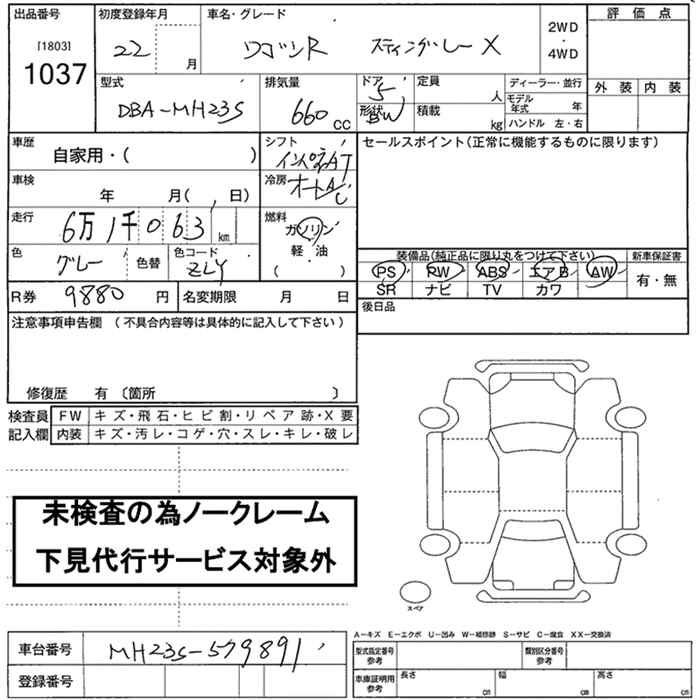 出品番号 初度登録年月 車名・グレード 評価点
[1803] 22 月 ワゴンR スティングレー X 2WD・4WD
1037
型式 排気量 ドア 5 定員 人 ディーラー・並行 外装 内装
DBA-MH23S 660 CC 形状 BW 積載 kg モデル年式 年
ハンドル 左・右
車歴 自家用・( ) シフト インパネAT セールスポイント(正常に機能するものに限ります)
車検 年 月( 日) 冷房 オートA/C
走行 6万 1千 0 6 3 km 燃料 ガソリン
軽・油
( )
色 グレー 色替 色コード ZLY
装備品(純正品に限り丸をつけて下さい) 新車保証書
PS PW ABS エアB AW 有・無
SR ナビ TV カワ
R券 9880 円 名変期限 月 日 後日品
注意事項申告欄 (不具合内容等は具体的に記入して下さい)
修復歴 有 〔箇所 〕
検査員記入欄 FW キズ・飛石・ヒビ割・リペア跡・X要
内装 キズ・汚レ・コゲ・穴・スレ・キレ・破レ
未検査の為ノークレーム
下見代行サービス対象外
スペア
A-キズ E-エクボ U-凹み W-補修跡 S-サビ C-腐食 XX-交換済
車台番号 MH23S-579891 型式指定番号参考 類別区分番号参考
登録番号 車庫証明用参考 長さ cm 幅 cm 高さ cm